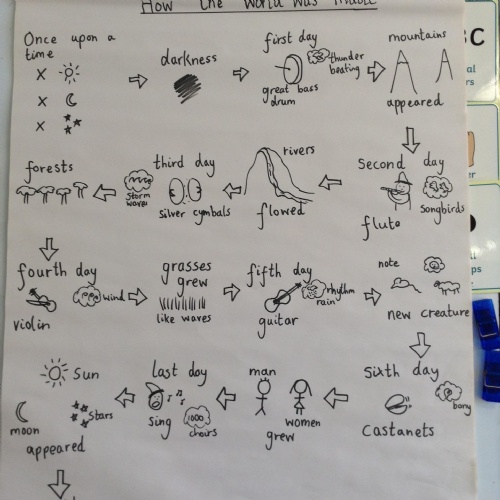 How the World Was Made
Once upon a
time
X
X
X
darkness
first day
great bass
drum
thunder
beating
mountains
appeared
Second day
flute
songbirds
rivers
flowed
third day
silver cymbals
storm
waves
forests
fourth day
violin
wind
grasses
grew
like waves
fifth day
guitar
rhythm
rain
note
new creature
Sixth day
Castanets
bony
man
women
grew
last day
sing
1000
choirs
Sun
moon
stars
appeared